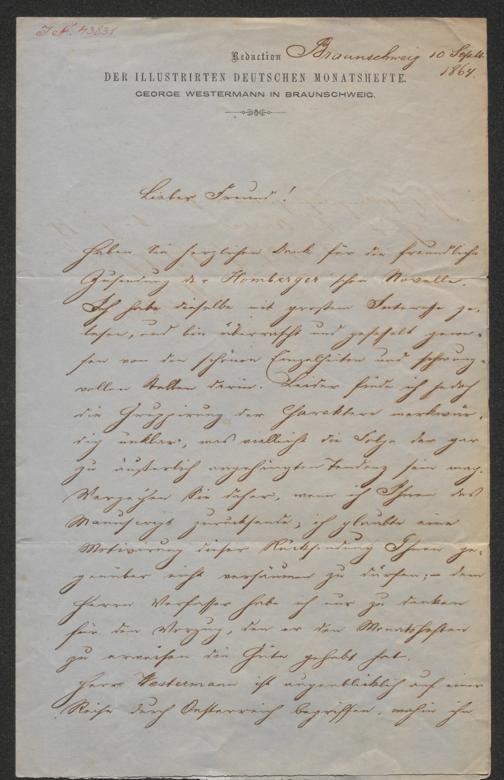 I.N. 43831
Redaction Braunschweig 10 Sept.
1864.
DER ILLUSTRIRTEN DEUTSCHEN MONATSHEFTE.
GEORGE WESTERMANN IN BRAUNSCHWEIG.
Lieber Freund!
Haben Sie herzlichen Dank für die freundliche
Zusendung der Homberger'schen Novelle.
Ich habe dieselbe mit großem Interesse ge-
lesen, und bin überrascht und gefesselt gewe-
sen von den schönen Einzelheiten und schwung-
vollen Stellen darin. Leider finde ich jedoch
die Gruppirung der Charaktere merkwür-
dig unklar, was vielleicht die Folge der gar
zu äußerlich angehängten Tendenz sein mag.
Verzeihen Sie daher, wenn ich Ihnen das
Manuscript zurücksende; ich glaubte eine
Motivirung dieser Rücksendung Ihnen ge-
genüber nicht versäumen zu dürfen; – dem
Herrn Verfasser habe ich nur zu danken
für den Vorzug, den er den Monatsheften
zu erweisen die Güte gehabt hat.
Herr Westermann ist augenblicklich auf einer
Reise durch Oesterreich begriffen, wohin ihn